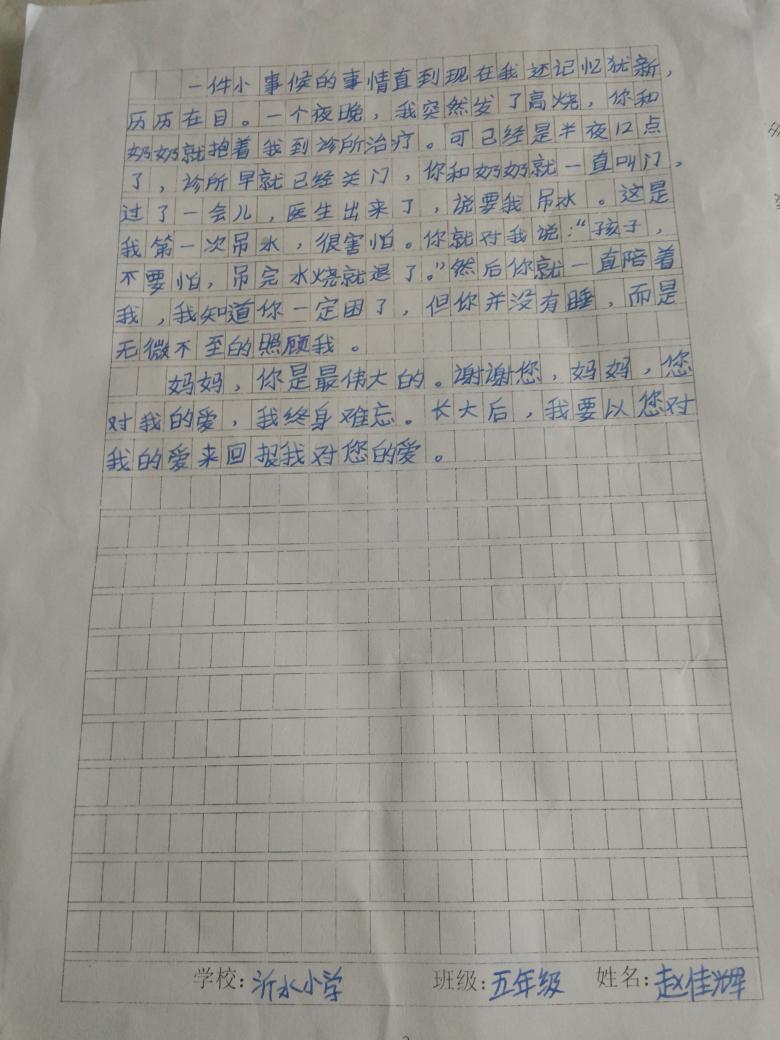 一件小事候的事情直到现在我还记忆犹新，
历历在目。一个夜晚，我突然发了高烧，你和
奶奶就抱着我到诊所治疗。可已经是半夜12点
了，诊所早就已经关门，你和奶奶就一直叫门，
过了一会儿，医生出来了，说要我吊水。这是
我第一次吊水，很害怕。你就对我说：“孩子，
不要怕，吊完水烧就退了。”然后你就一直陪着
我，我知道你一定困了，但你并没有睡，而是
无微不至的照顾我。
妈妈，你是最伟大的。谢谢您，妈妈，您
对我的爱，我终身难忘。长大后，我要以您对
我的爱来回报我对您的爱。
学校：沂水小学 班级：五年级 姓名：赵佳辉